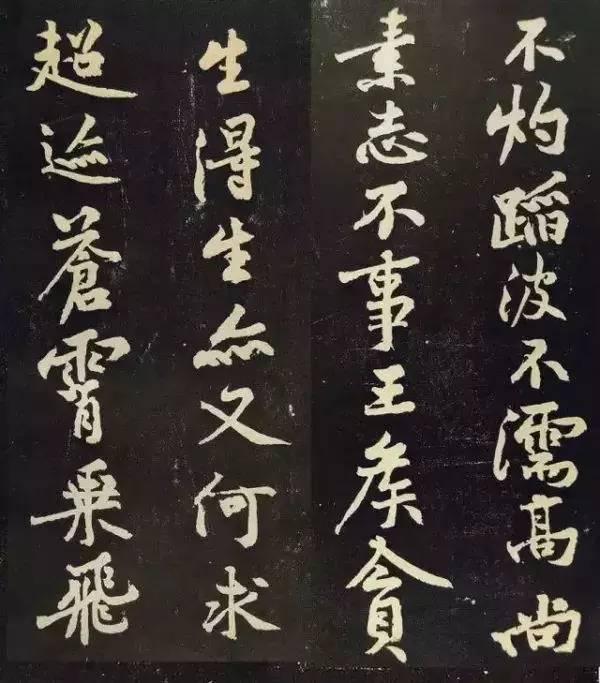 不灼蹈波不濡高尚
素志不事王矦貪
生得生亦又何求
超迹蒼霄乘飛